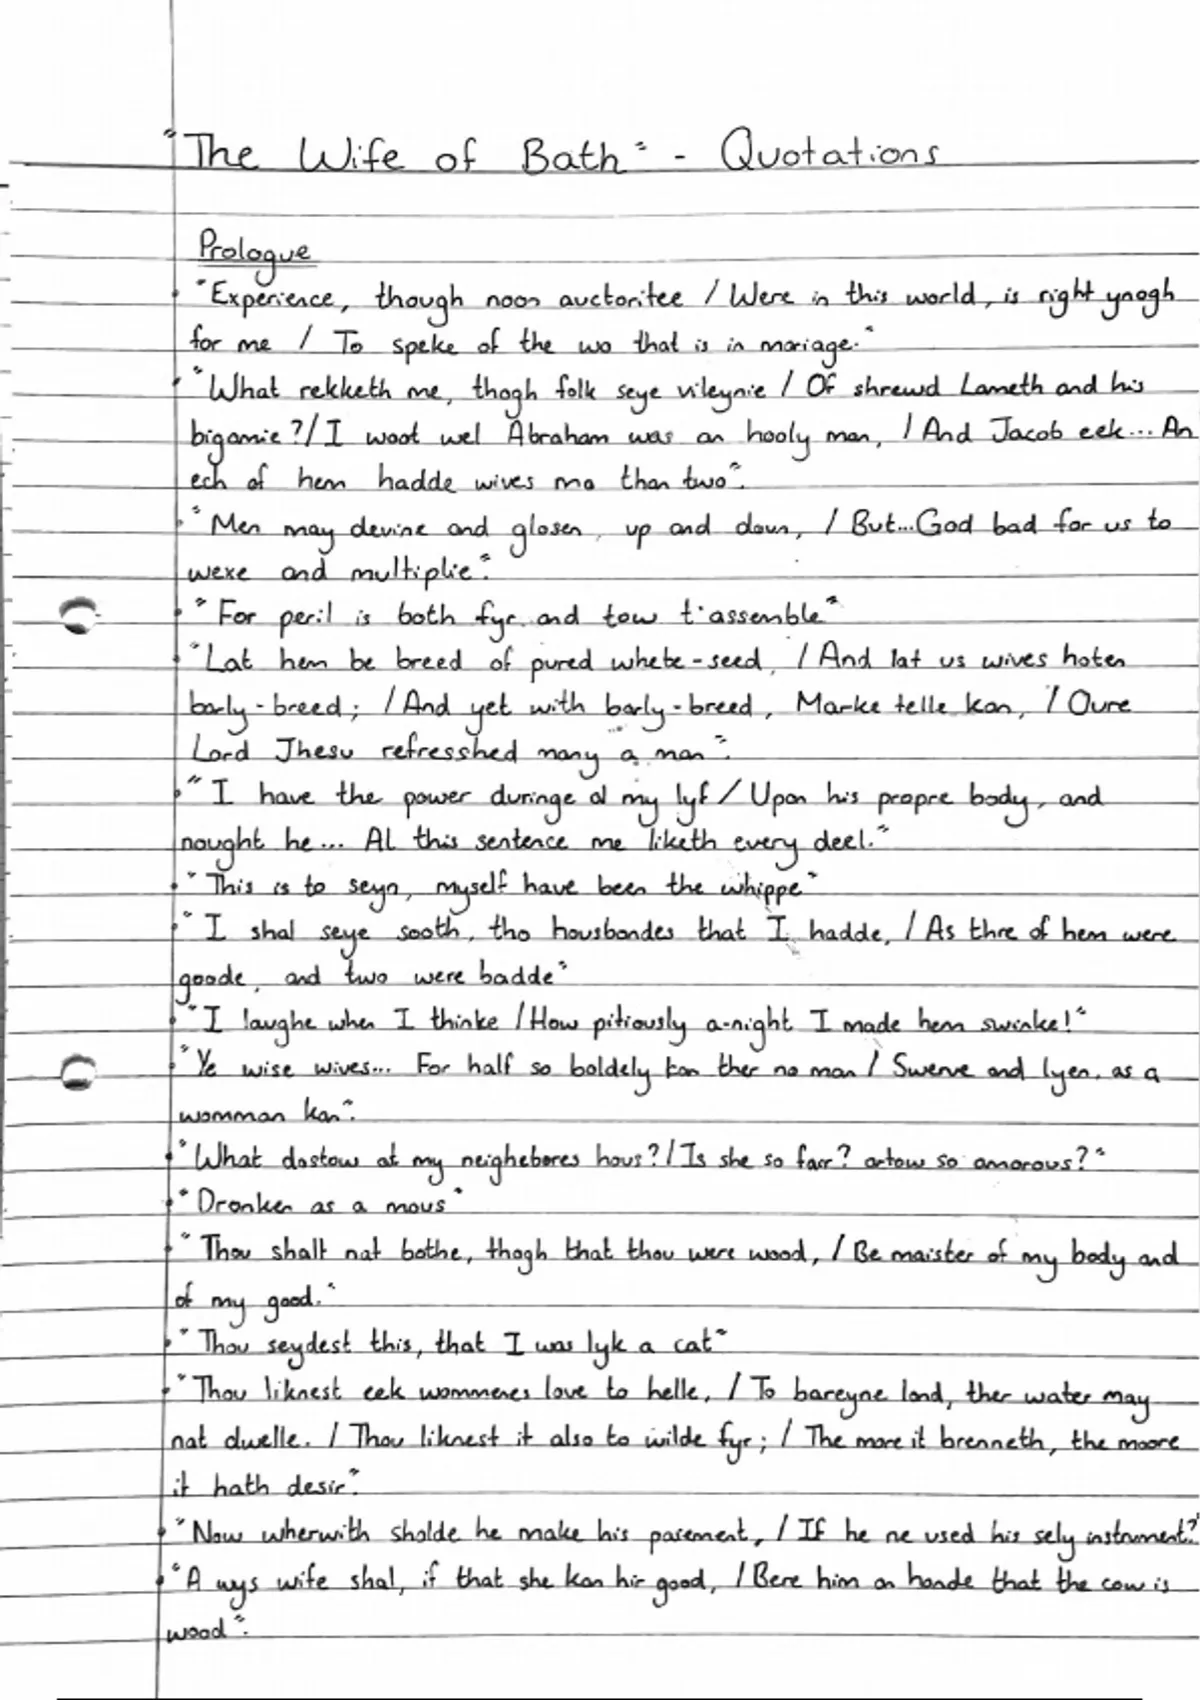 "The Wife of Bath" - Quotations
Prologue
"Experience, though noon auctoritee / Were in this world, is right ynogh
for me / To speke of the wo that is in mariage."
"What rekketh me, thogh folk seye vileynie / Of shrewd Lameth and his
bigamie?/ I woot wel Abraham was an hooly man, / And Jacob eek... An
ech of hem hadde wives mo than two".
"Men may devine and glosen, up and doun, / But...God bad for us to
wexe and multiplie".
"For peril is both fyr and tow t'assemble"
"Lat hem be breed of pured whete-seed, / And lat us wives hoten
barly-breed; / And yet with barly-breed, Marke telle kan, / Oure
Lord Jhesu refresshed many a man".
"I have the power duringe al my lyf / Upon his propre body, and
nought he... Al this sentence me liketh every deel."
"This is to seyn, myself have been the whippe"
"I shal seye sooth, tho housbondes that I hadde, / As thre of hem were
goode, and two were badde"
"I laughe when I thinke / How pitiously a-night I made hem swinke!"
"Ye wise wives... For half so boldely kan ther no man / Swerve and lyen, as a
womman kan".
"What dostow at my neighebores hous? / Is she so fair? artow so amorous?"
"Dronken as a mous"
"Thou shalt nat bothe, thogh that thou were wood, / Be maister of my body and
of my good."
"Thou seydest this, that I was lyk a cat"
"Thou liknest eek wommenes love to helle, / To bareyne lond, ther water may
nat dwelle. / Thou liknest it also to wilde fyr; / The more it brenneth, the moore
it hath desir".
"Now wherwith sholde he make his paiement, / If he ne used his sely instrument?"
"A wys wife shal, if that she kan hir good, / Bere him on honde that the cow is
wood".